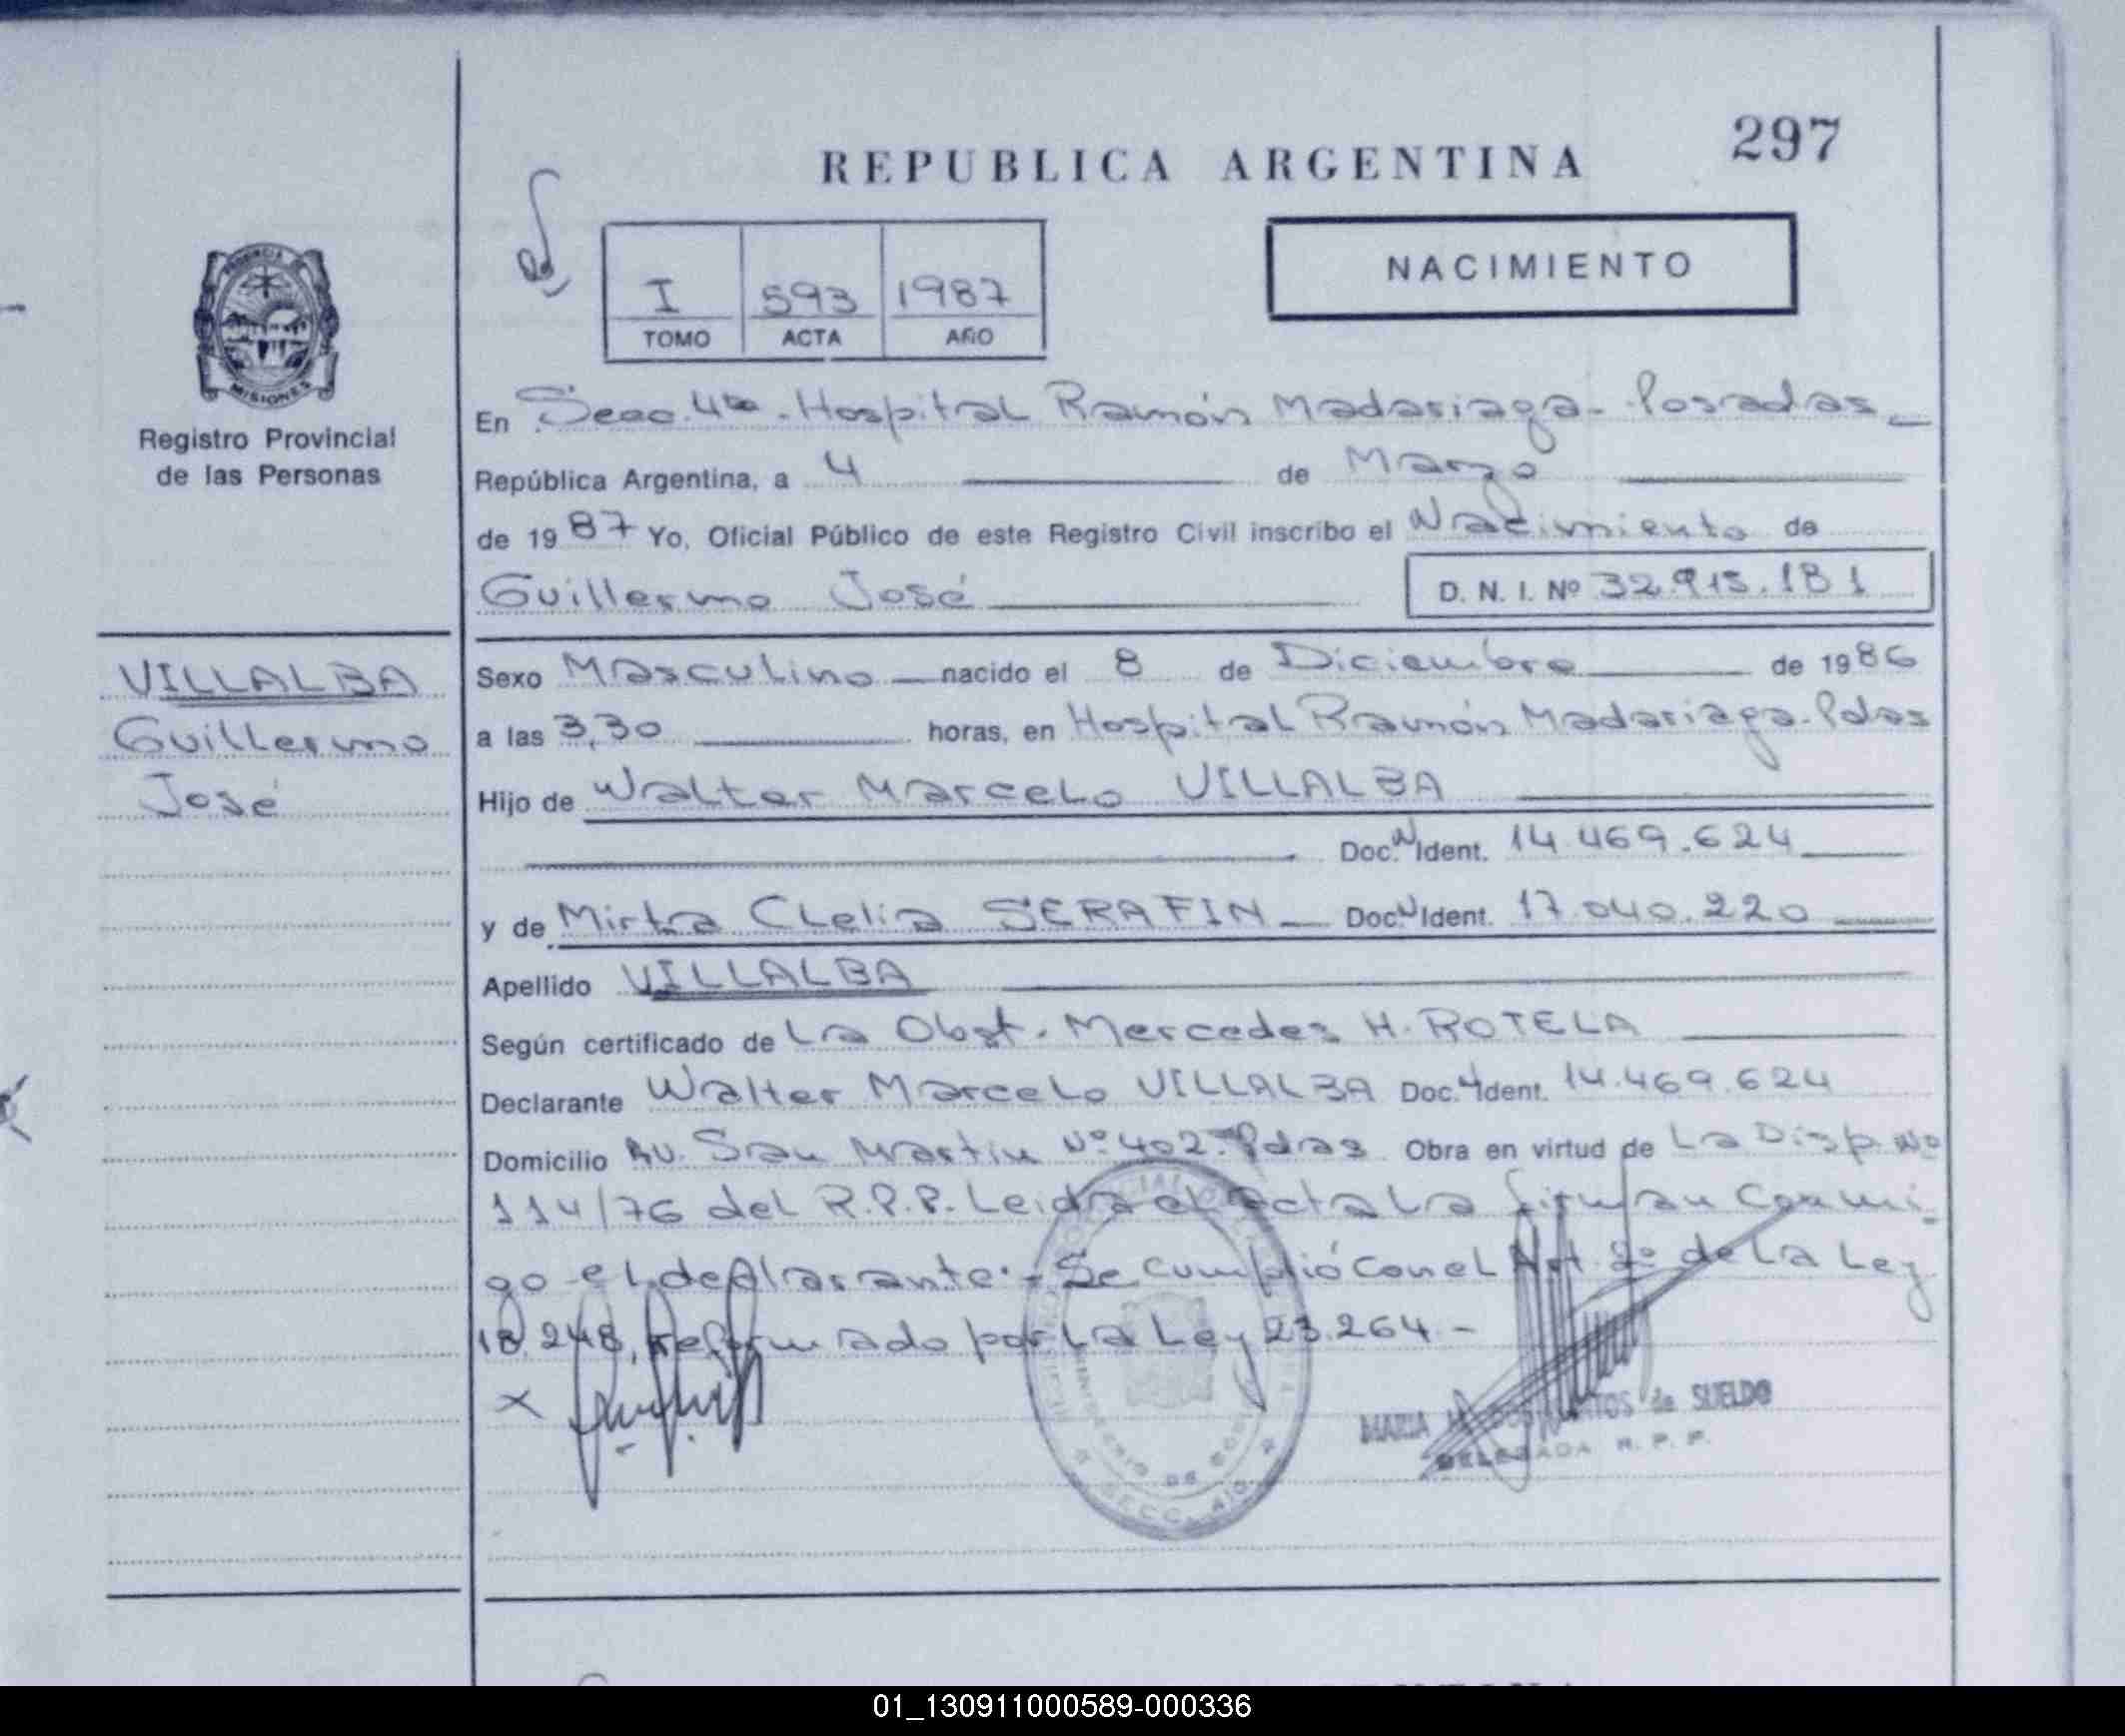 REPUBLICA ARGENTINA
297
NACIMIENTO
I 593 1987
TOMO ACTA AÑO
PROVINCIA
MISIONES
Registro Provincial
de las Personas
VILLALBA
Guillermo
José
En Secc. 4ta. Hospital Ramón Madariaga - Posadas
República Argentina, a 4 de Marzo
de 1987 Yo, Oficial Público de este Registro Civil inscribo el Nacimiento de
Guillermo José D. N. I. Nº 32.915.181
Sexo Masculino nacido el 8 de Diciembre de 1986
a las 3,30 horas, en Hospital Ramón Madariaga. Pdas
Hijo de Walter Marcelo VILLALBA
Doc. N Ident. 14.469.624
y de Mirta Clelia SERAFIN Doc. N Ident. 17.040.220
Apellido VILLALBA
Según certificado de La Obst. Mercedes H. ROTELA
Declarante Walter Marcelo VILLALBA Doc. Ident. 14.469.624
Domicilio Av. San Martin Nº 402. Pdas Obra en virtud de La Disp. Nº
114/76 del R.P.P. Leida el acta La firman Conmi-
go el declarante. - Se cumplió con el Art 2º de La Ley
18.248, Reformado por La Ley 23.264 -
x
MARIA de SUELDO
DELEGADA R. P. P.
01_130911000589-000336